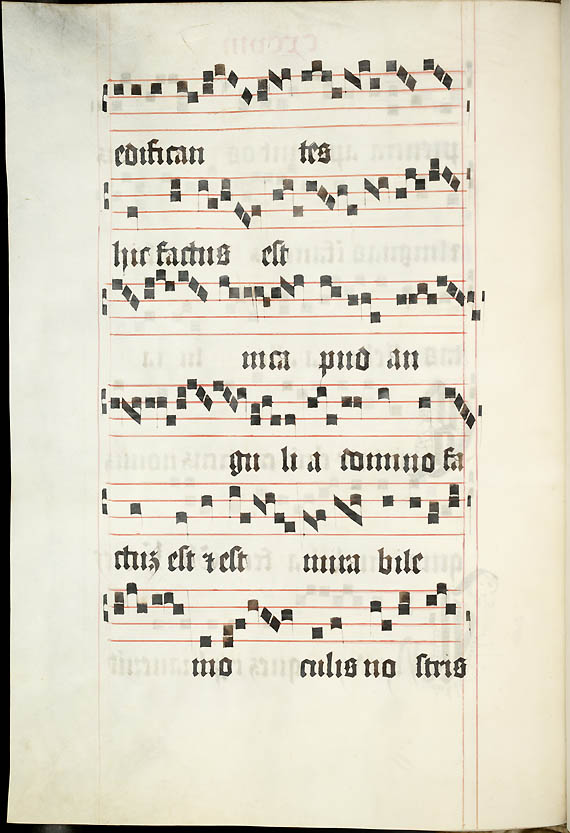 edifican tes
hic factus est
inca pud an
gu li a domino fa
ctuʒ est ⁊ est mira bile
in o culis no stris